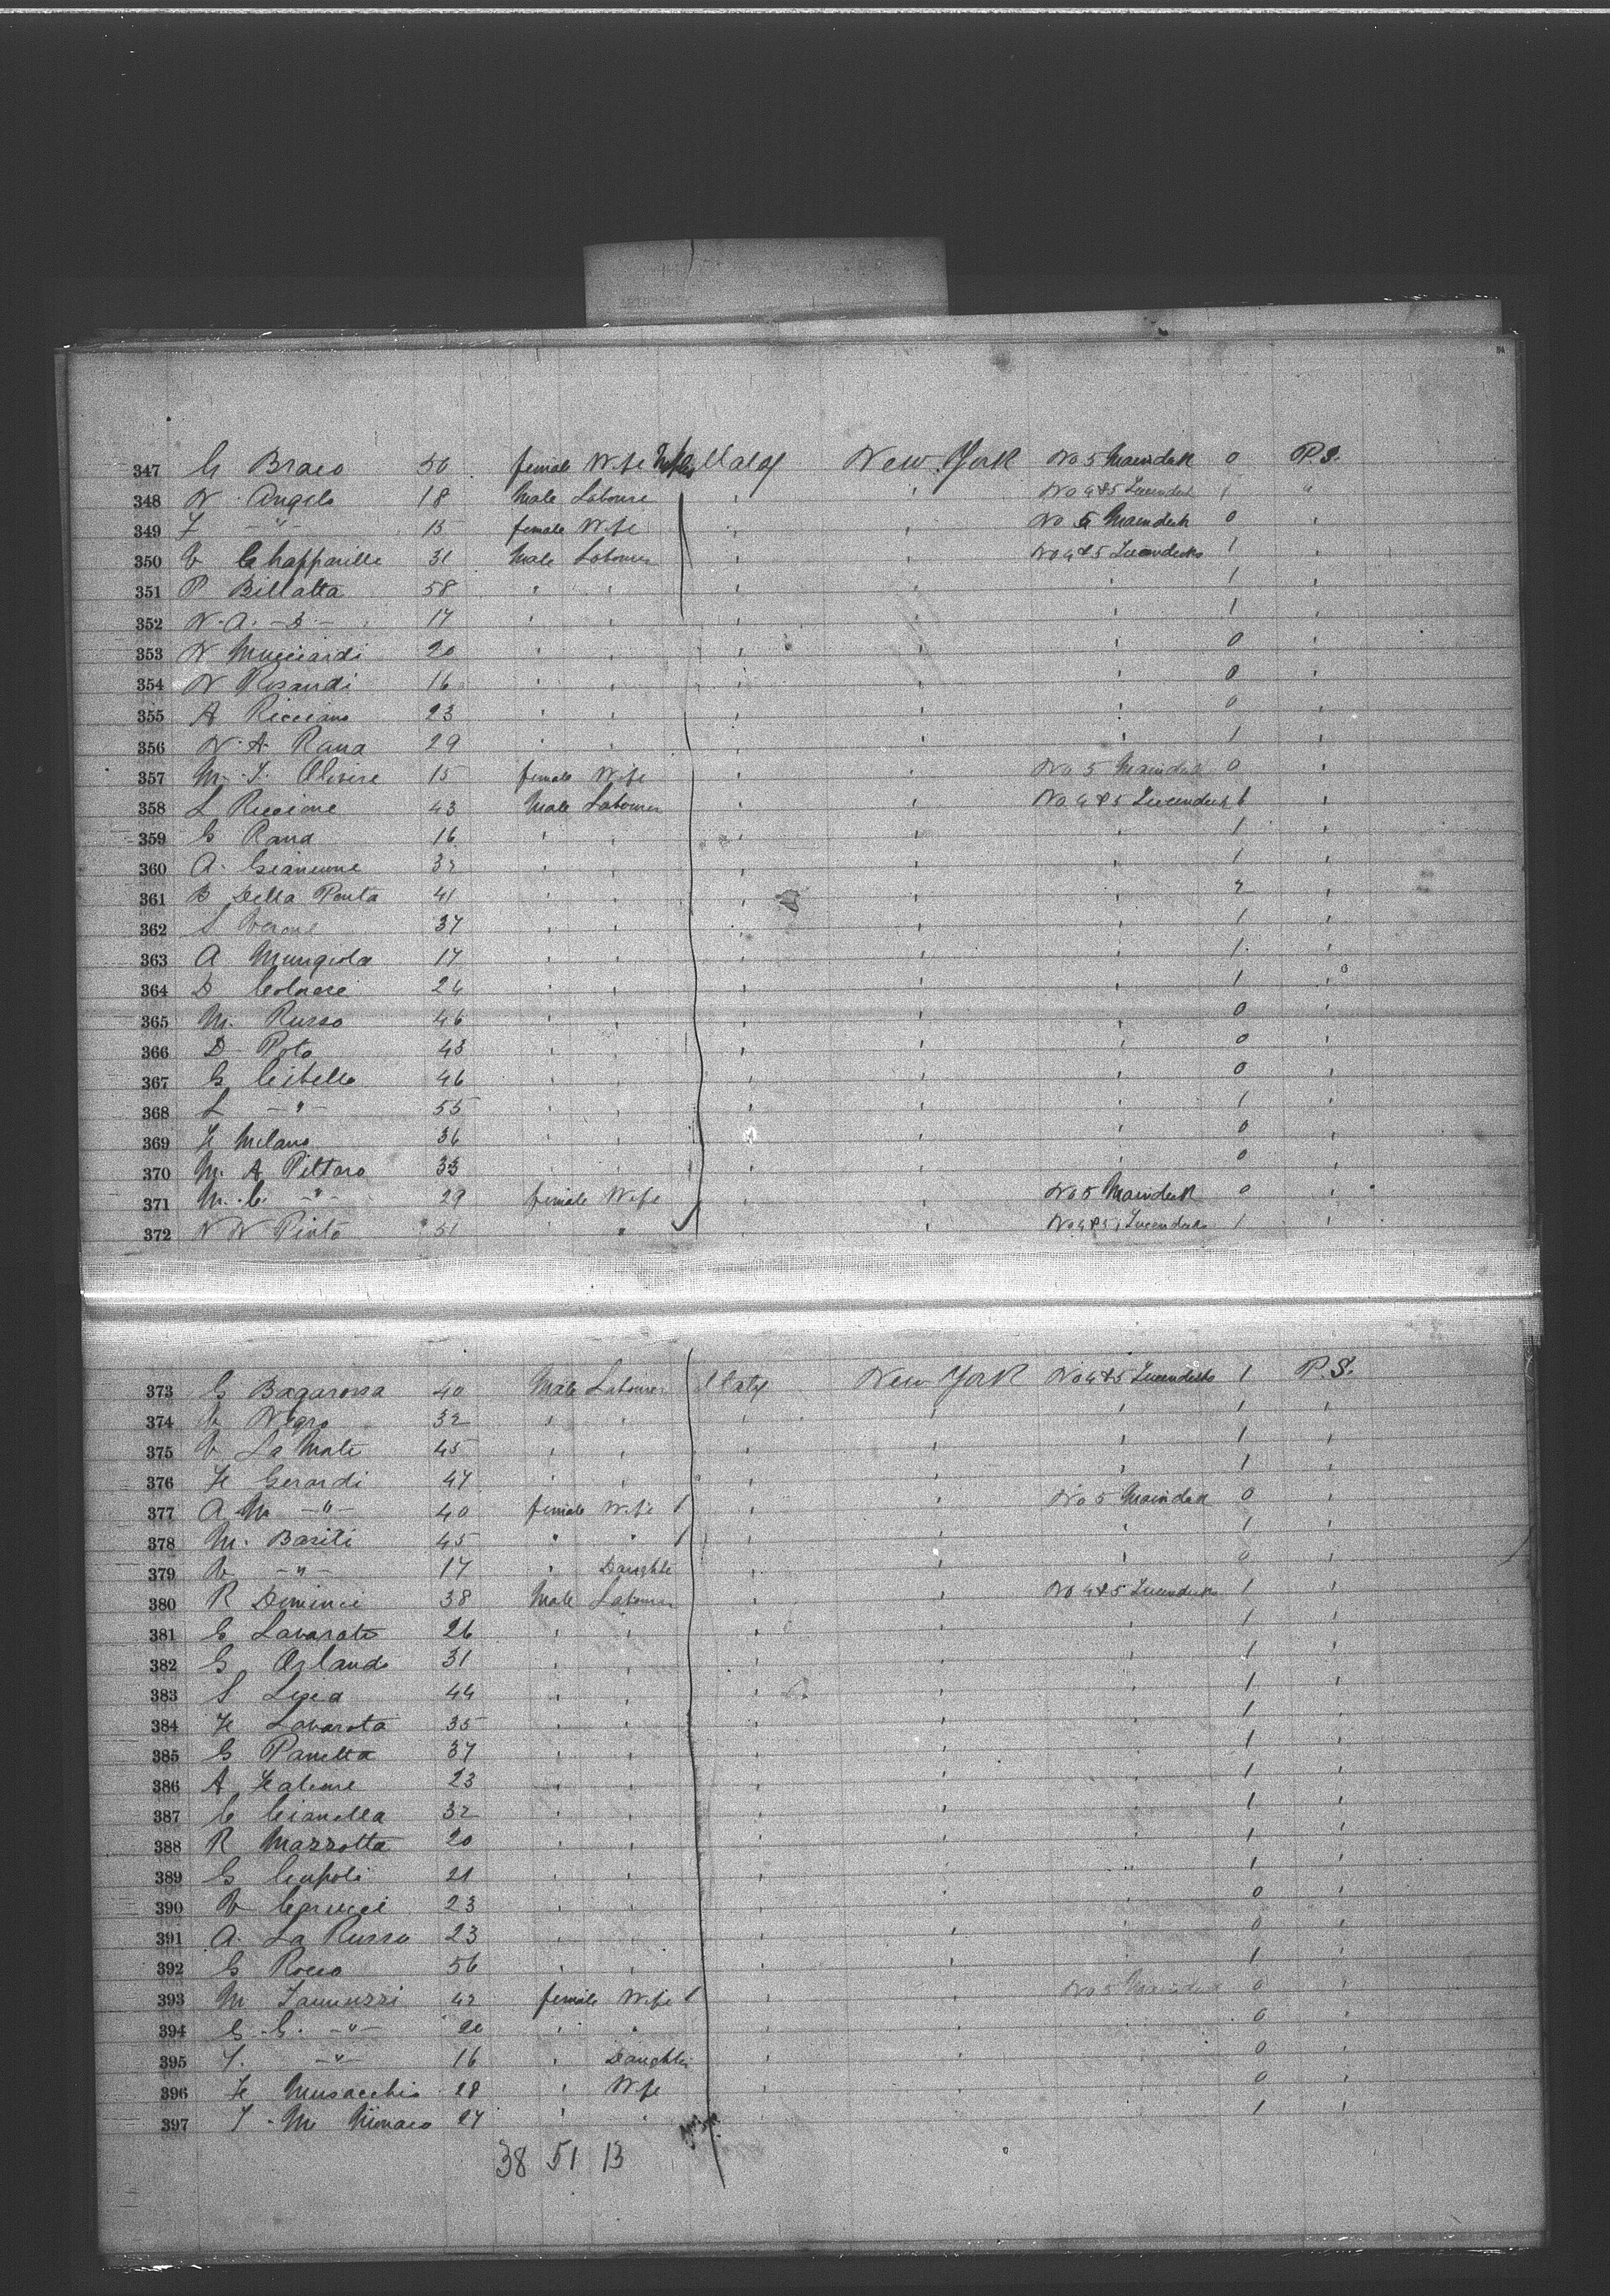 347 G Braco 50 female Wife Italy New York No 5 Maindeck 0 P.S.
348 N Angelo 18 Male Labourer ' ' No 4&5 1 "
349 F -"- 15 female Wife ' ' No 5 Maindeck 0 '
350 V 31 Male Labourer ' ' No 4&5 1 '
351 P Billatta 58 ' ' ' ' 1 '
352 N. A. -D- 17 ' ' ' ' 1 '
353 N Mucciardi 20 ' ' ' ' ' 0 '
354 N Rosandi 16 ' ' ' ' 0 '
355 A Ricciano 23 ' ' ' ' ' 0 '
356 N. A. Rana 29 ' ' ' ' ' 1 '
357 M. F. Olivere 15 female Wife ' ' No 5 Maindeck 0 '
358 L Riccione 43 Male Labourer ' ' No 4&5 1 '
359 G Rana 16 ' ' ' ' ' 1 '
360 A. 32 ' ' ' ' ' 1 '
361 B Della Penta 41 ' ' ' ' ' 2 '
362 S Verone 37 ' ' ' ' ' 1 '
363 A Mungiola 17 ' ' ' ' ' 1 '
364 D 24 ' ' ' ' ' 1 '
365 M. Russo 46 ' ' ' ' ' 0 '
366 D Poto 43 ' ' ' ' ' 0 '
367 G Cibello 46 ' ' ' ' ' 0 '
368 L -"- 55 ' ' ' ' ' 1 '
369 F Milano 36 ' ' ' ' ' 0 '
370 M. A Pittaro 33 ' ' ' ' ' 0 '
371 M. C. -"- 29 female Wife ' ' No 5 Maindeck 0 '
372 N N Pinto 51 ' " ' ' No 4&5 1 '
373 G Bagarossa 40 Male Labourer Italy New York No 4&5 1 P.S.
374 V Negro 32 ' ' ' ' ' 1 '
375 V La Male 45 ' ' ' ' ' 1 '
376 F Gerardi 47 ' ' ' ' ' 1 '
377 A. M -"- 40 female Wife 1 ' ' No 5 Maindeck 0 '
378 M. Basili 45 " " 1 ' ' ' 1 '
379 V -"- 17 ' Daughter ' ' ' 0 '
380 R 38 Male Labourer ' ' No 4&5 1 '
381 G Lavarato 26 ' ' ' ' ' 1 '
382 G Orlando 31 ' ' ' ' ' 1 '
383 S 44 ' ' ' ' ' 1 '
384 F Lavarota 35 ' ' ' ' ' 1 '
385 G Panetta 37 ' ' ' ' 1 '
386 A Falcone 23 ' ' ' ' ' 1 '
387 C Cianella 32 ' ' ' ' 1 '
388 R Mazzotta 20 ' ' ' ' ' 1 '
389 G 21 ' ' ' ' ' 1 '
390 V Carucci 23 ' ' ' ' ' 0 '
391 A. La Russo 23 ' ' ' ' ' 0 '
392 G Rocco 56 ' ' ' ' ' 1 '
393 M Iannuzzi 42 female Wife 1 ' ' No 5 Maindeck 0 '
394 G. G. -"- 20 ' " ' ' ' 0 '
395 F. -"- 16 ' Daughter ' ' ' 0 '
396 F Musacchio 28 ' Wife ' ' ' 0 '
397 F. M Monaco 27 ' ' ' ' ' 1 '
38 51 13